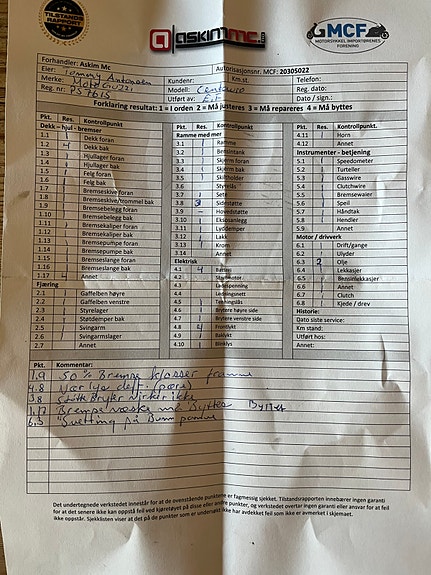 TILSTANDS
RAPPORT
askimmc.no
GMCF
MOTORSYKKEL IMPORTØRENES
FORENING
Forhandler: Askim Mc Autorisasjonsnr. MCF: 20305022
Eier: Tommy Antonsen Kundenr: Telefon:
Merke: Moto Guzzi Km.st. Reg.nr:
Reg. nr: PS7615 Modell: Centauro Dato / sign.:
Utført av:
Forklaring resultat: 1 = I orden 2 = Må justeres 3 = Må repareres 4 = Må byttes
Pkt. Res. Kontrollpunkt
Dekk – hjul - bremser
1.1 1 Dekk foran
1.2 4 Dekk bak
1.3 1 Hjullager foran
1.4 1 Hjullager bak
1.5 1 Felg foran
1.6 1 Felg bak
1.7 1 Bremseskive foran
1.8 1 Bremseskive/trommel bak
1.9 Bremsebelegg foran
1.10 1 Bremsebelegg bak
1.11 1 Bremsekaliper foran
1.12 1 Bremsekaliper bak
1.13 1 Bremsepumpe foran
1.14 1 Bremsepumpe bak
1.15 1 Bremseslange foran
1.16 1 Bremseslange bak
1.17 4 Annet
Fjæring
2.1 1 Gaffelben høyre
2.2 1 Gaffelben venstre
2.3 1 Styrelager
2.4 1 Støtdemper bak
2.5 1 Svingarm
2.6 1 Svingarmslager
2.7 Annet
Pkt. Res. Kontrollpunkt
Ramme med mer
3.1 1 Ramme
3.2 1 Bensintank
3.3 1 Skjerm foran
3.4 1 Skjerm bak
3.5 1 Skiltholder
3.6 1 Styrelås
3.7 1 Sete
3.8 3 Sidestøtte
3.9 – Hovedstøtte
3.10 1 Eksosanlegg
3.11 1 Lyddemper
3.12 1 Lakk
3.13 1 Krom
3.14 Annet
Elektrisk
4.1 4 Batteri
4.2 Startmotor
4.3 1 Ladespenning
4.4 1 Ledningsnett
4.5 1 Tenningslås
4.6 1 Brytere høyre side
4.7 1 Brytere venstre side
4.8 4 Frontlykt
4.9 1 Baklykt
4.10 1 Blinklys
4.11 Horn
4.12 Annet
Instrumenter - betjening
5.1 1 Speedometer
5.2 1 Turteller
5.3 1 Gasswire
5.4 1 Clutchwire
5.5 Bremsewaier
5.6 1 Speil
5.7 1 Håndtak
5.8 1 Hendler
5.9 Annet
Motor / drivverk
6.1 1 Drift/gange
6.2 1 Ulyder
6.3 2 Olje
6.4 1 Lekkasjer
6.5 1 Bensinlekkasjer
6.6 Annet
6.7 1 Clutch
6.8 1 Kjede / drev
Historie:
Dato siste service:
Km stand:
Utført hos:
Annet:
Pkt. Kommentarer:
1.9 50% Bremse klosser framme
4.8 Nær lys deff. (pære)
3.8 Støttebryter virker ikke
1.17 Bremse væske må Byttes Byttet
6.3 Svetting på Bunnpanne
Det undertegnede verkstedet innestår for at de ovenstående punktene er fagmessig sjekket. Tilstandsrapporten innebærer ingen garanti
for at det senere ikke kan oppstå feil ved kjøretøyet på disse eller andre punkter, og verkstedet overtar ingen garanti eller ansvar for at feil
ikke oppstår. Sjekklisten viser at det på de punkter som er undersøkt ikke har avdekket feil som ikke er avmerket i skjemaet.